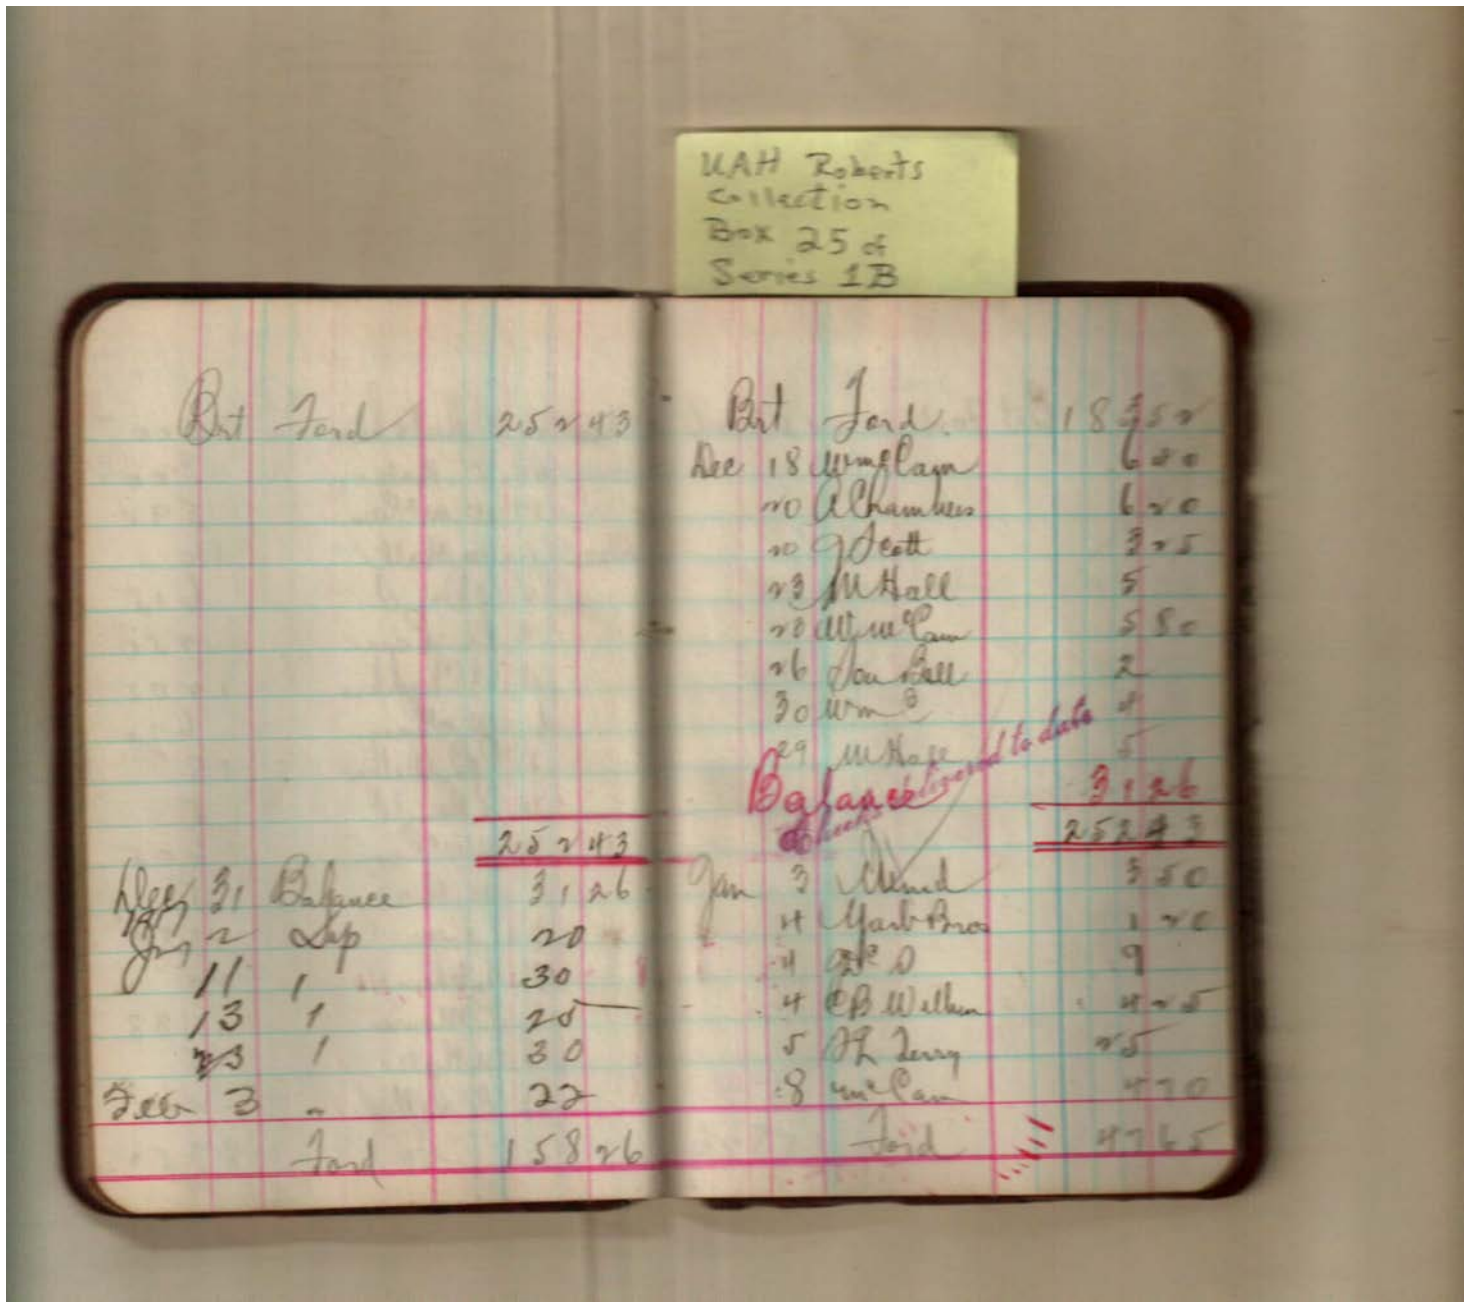 UAH Roberts
Collection
Box 25 of
Series 1B
Brt Ford 252 43
252 43
Dec 31 Balance 31 26
Jan 2 Dep 20
11 " 30
13 " 25
23 " 30
Feb 3 " 22
Ford 158 26
Brt Ford. 183 52
Dec 18 Wm McCam 6 80
20 A Chambers 6 20
20 J Scott 3 25
23 M Hall 5
W McCam 5 80
26 Bell 2
30 Wm 4
29 M Hall 5
Balance 31 26
Checks to date
252 43
Jan 3 3 50
4 Yarb Bros 1 20
4 9
4 CB 4 25
5 Terry 25
8 McCam 4 70
Ford 47 65